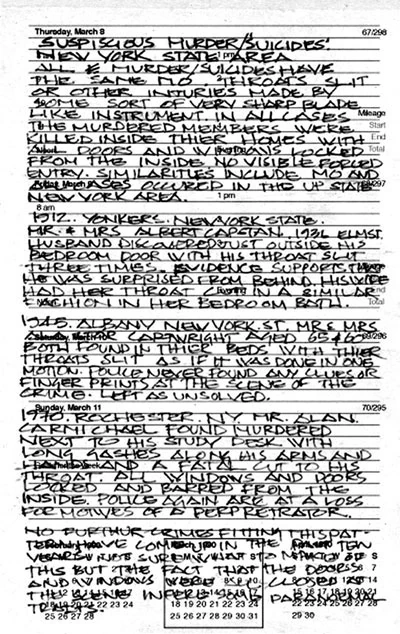 Thursday, March 8 67/298
SUSPISCIOUS MURDER/SUICIDES.
NEW YORK STATE AREA 1 pm
ALL 8 MURDER/SUICIDES HAVE
THE SAME MO. THROATS SLIT
OR OTHER INJURIES MADE BY
SOME SORT OF VERY SHARP BLADE
LIKE INSTRUMENT. IN ALL CASES Mileage
THE MURDERED MEMBERS WERE Start
KILLED INSIDE THIER HOMES WITH End
ALL DOORS AND WINDOWS LOCKED Total
FROM THE INSIDE NO VISIBLE FORCED
ENTRY. SIMILARITIES INCLUDE MO AND
ALL CASES OCCURED IN THE UP STATE
NEW YORK AREA. 1 pm
8 am
1912. YONKERS. NEW YORK STATE.
MR. & MRS ALBERT CAPSTAN. 1936 ELM ST.
HUSBAND DISCOVERED JUST OUTSIDE HIS
BEDROOM DOOR WITH HIS THROAT SLIT
THREE TIMES. EVIDENCE SUPPORTS THAT
HE WAS SURPRISED FROM BEHIND. HIS WIFE
HAD HER THROAT IN A SIMILAR
FASHION IN HER BEDROOM BATH. Total
1945. ALBANY NEW YORK. ST. MR & MRS
CARTWRIGHT AGED 65 & 63
BOTH FOUND IN THIER BEDS WITH THIER
THROATS SLIT AS IF IT WAS DONE IN ONE
MOTION. POLICE NEVER FOUND ANY CLUES OR
FINGER PRINTS AT THE SCENE OF THE
CRIME. LEFT AS UNSOLVED.
Sunday, March 11 70/295
1970 ROCHESTER. NY. MR. ALAN.
CARMICHAEL FOUND MURDERED
NEXT TO HIS STUDY DESK WITH
LONG GASHES ALONG HIS ARMS AND
AND A FATAL CUT TO HIS
THROAT. ALL WINDOWS AND DOORS
LOCKED AND BARRED FROM THE
INSIDE. POLICE AGAIN ARE AT A LOSS
FOR MOTIVES OF A PERPRETRATOR.
NO FURTHUR CRIMES FITTING THIS PAT
TERN HAVE COME UP IN THE TEN
YEARS
THIS BUT THE FACT THAT THE DOORS
AND WINDOWS WERE CLOSED AT
THE SCENE INFERS
18 19 20 21 22 23 24 18 19 20 21 22 23 24
25 26 27 28 25 26 27 28 29 30 31 29 30